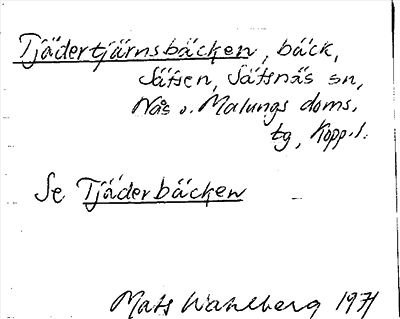 Tjädertjärnsbäcken, bäck,
Sätsen, Sätsnäs sn,
Nås o. Malungs doms.
tg, Kopp. l.
Se Tjäderbäcken
Mats Wahlberg 1971